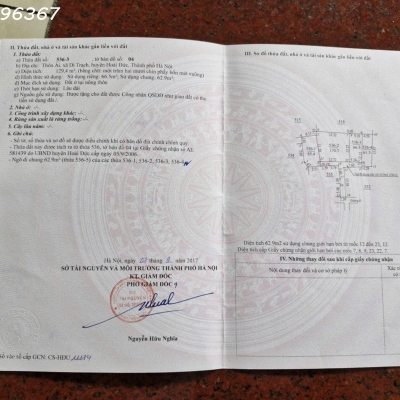 96367
II. Thửa đất, nhà ở và tài sản khác gắn liền với đất
1. Thửa đất:
a) Thửa đất số: 536-3 , tờ bản đồ số: 04
b) Địa chỉ: Thôn Ải, xã Di Trạch, huyện Hoài Đức, Thành phố Hà Nội
c) Diện tích: 129.4 m², (bằng chữ: một trăm hai mươi chín phẩy bốn mét vuông)
d) Hình thức sử dụng: Sử dụng riêng: 66.5m²; Sử dụng chung: 62.9m²
đ) Mục đích sử dụng: Đất ở tại nông thôn
e) Thời hạn sử dụng: Lâu dài
g) Nguồn gốc sử dụng: Được tặng cho đất được Công nhận QSDĐ như giao đất có thu tiền sử dụng đất./.
2. Nhà ở: -/-
3. Công trình xây dựng khác: -/-
4. Rừng sản xuất là rừng trồng: -/-
5. Cây lâu năm: -/-
6. Ghi chú:
- Số tờ, số thửa và sơ đồ sẽ được điều chỉnh khi có bản đồ địa chính chính quy
- Thửa đất này được tách ra từ thửa 536, tờ bản đồ 04 tại Giấy chứng nhận số AE
581439 do UBND huyện Hoài Đức cấp ngày 05/9/2006.
- Ngõ đi chung 62.9m² (thửa 536-5) của các thửa 536-1, 536-2, 536-3, 536-4
Hà Nội, ngày
2017
SỞ TÀI NGUYÊN VÀ MÔI TRƯỜNG THÀNH PHỐ HÀ NỘI
KT. GIÁM ĐỐC
PHÓ GIÁM ĐỐC
Nguyễn Hữu Nghĩa
Số vào sổ cấp GCN: CS-HĐU
III. Sơ đồ thửa đất, nhà ở và tài sản khác gắn liền với đất
Diện tích 62.9m2 sử dụng chung giới hạn bởi
IV. Những thay đổi sau khi cấp giấy chứng nhận
Nội dung thay đổi và cơ sở pháp lý